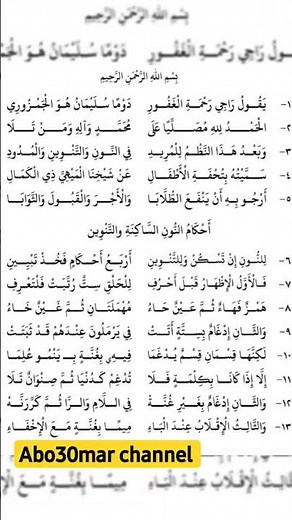 بِسْمِ اللهِ الرَّحْمَنِ الرَّحِيمِ
ـقُولُ رَاجِي رَحْمَةِ الْغَفُورِ دَوْمًا سُلَيْمَانُ هُوَ الْجَمْـ
بِسْمِ اللهِ الرَّحْمَنِ الرَّحِيمِ
١- يَقُولُ رَاجِي رَحْمَةِ الْغَفُورِ دَوْمًا سُلَيْمَانُ هُوَ الْجَمْزُورِي
٢- الْحَمْدُ لِلهِ مُصَلِّيًا عَلَى مُحَمَّدٍ وَآلِهِ وَمَنْ تَلَا
٣- وَبَعْدُ هَذَا النَّظْمُ لِلْمُرِيدِ فِي النُّونِ وَالتَّنْوِينِ وَالْمُدُودِ
٤- سَمَّيْتُهُ بِتُحْفَةِ الْأَطْفَالِ عَنْ شَيْخِنَا الْمِيهِيِّ ذِي الْكَمَالِ
٥- أَرْجُو بِهِ أَنْ يَنْفَعَ الطُّلَّابَا وَالْأَجْرَ وَالْقَبُولَ وَالثَّوَابَا
أَحْكَامُ النُّونِ السَّاكِنَةِ وَالتَّنْوِينِ
٦- لِلنُّونِ إِنْ تَسْكُنْ وَلِلتَّنْوِينِ أَرْبَعُ أَحْكَامٍ فَخُذْ تَبْيِينِي
٧- فَالْأَوَّلُ الْإِظْهَارُ قَبْلَ أَحْرُفِ لِلْحَلْقِ سِتٌّ رُتِّبَتْ فَلْتَعْرِفِ
٨- هَمْزٌ فَهَاءٌ ثُمَّ عَيْنٌ حَاءُ مُهْمَلَتَانِ ثُمَّ غَيْنٌ خَاءُ
٩- وَالثَّانِ إِدْغَامٌ بِسِتَّةٍ أَتَتْ فِي يَرْمَلُونَ عِنْدَهُمْ قَدْ ثَبَتَتْ
١٠- لَكِنَّهَا قِسْمَانِ قِسْمٌ يُدْغَمَا فِيهِ بِغُنَّةٍ بِيَنْمُو عُلِمَا
١١- إِلَّا إِذَا كَانَا بِكِلْمَةٍ فَلَا تُدْغِمْ كَدُنْيَا ثُمَّ صِنْوَانٍ تَلَا
١٢- وَالثَّانِ إِدْغَامٌ بِغَيْرِ غُنَّةْ فِي اللَّامِ وَالرَّا ثُمَّ كَرِّرَنَّهْ
١٣- وَالثَّالِثُ الْإِقْلَابُ عِنْدَ الْبَاءِ مِيمًا بِغُنَّةٍ مَعَ الْإِخْفَاءِ
Abo30mar channel
ـالِثُ الْإِقْلَابُ عِنْدَ الْبَاءِ مِيمًا بِغُنَّةٍ مَعَ الْإِـ